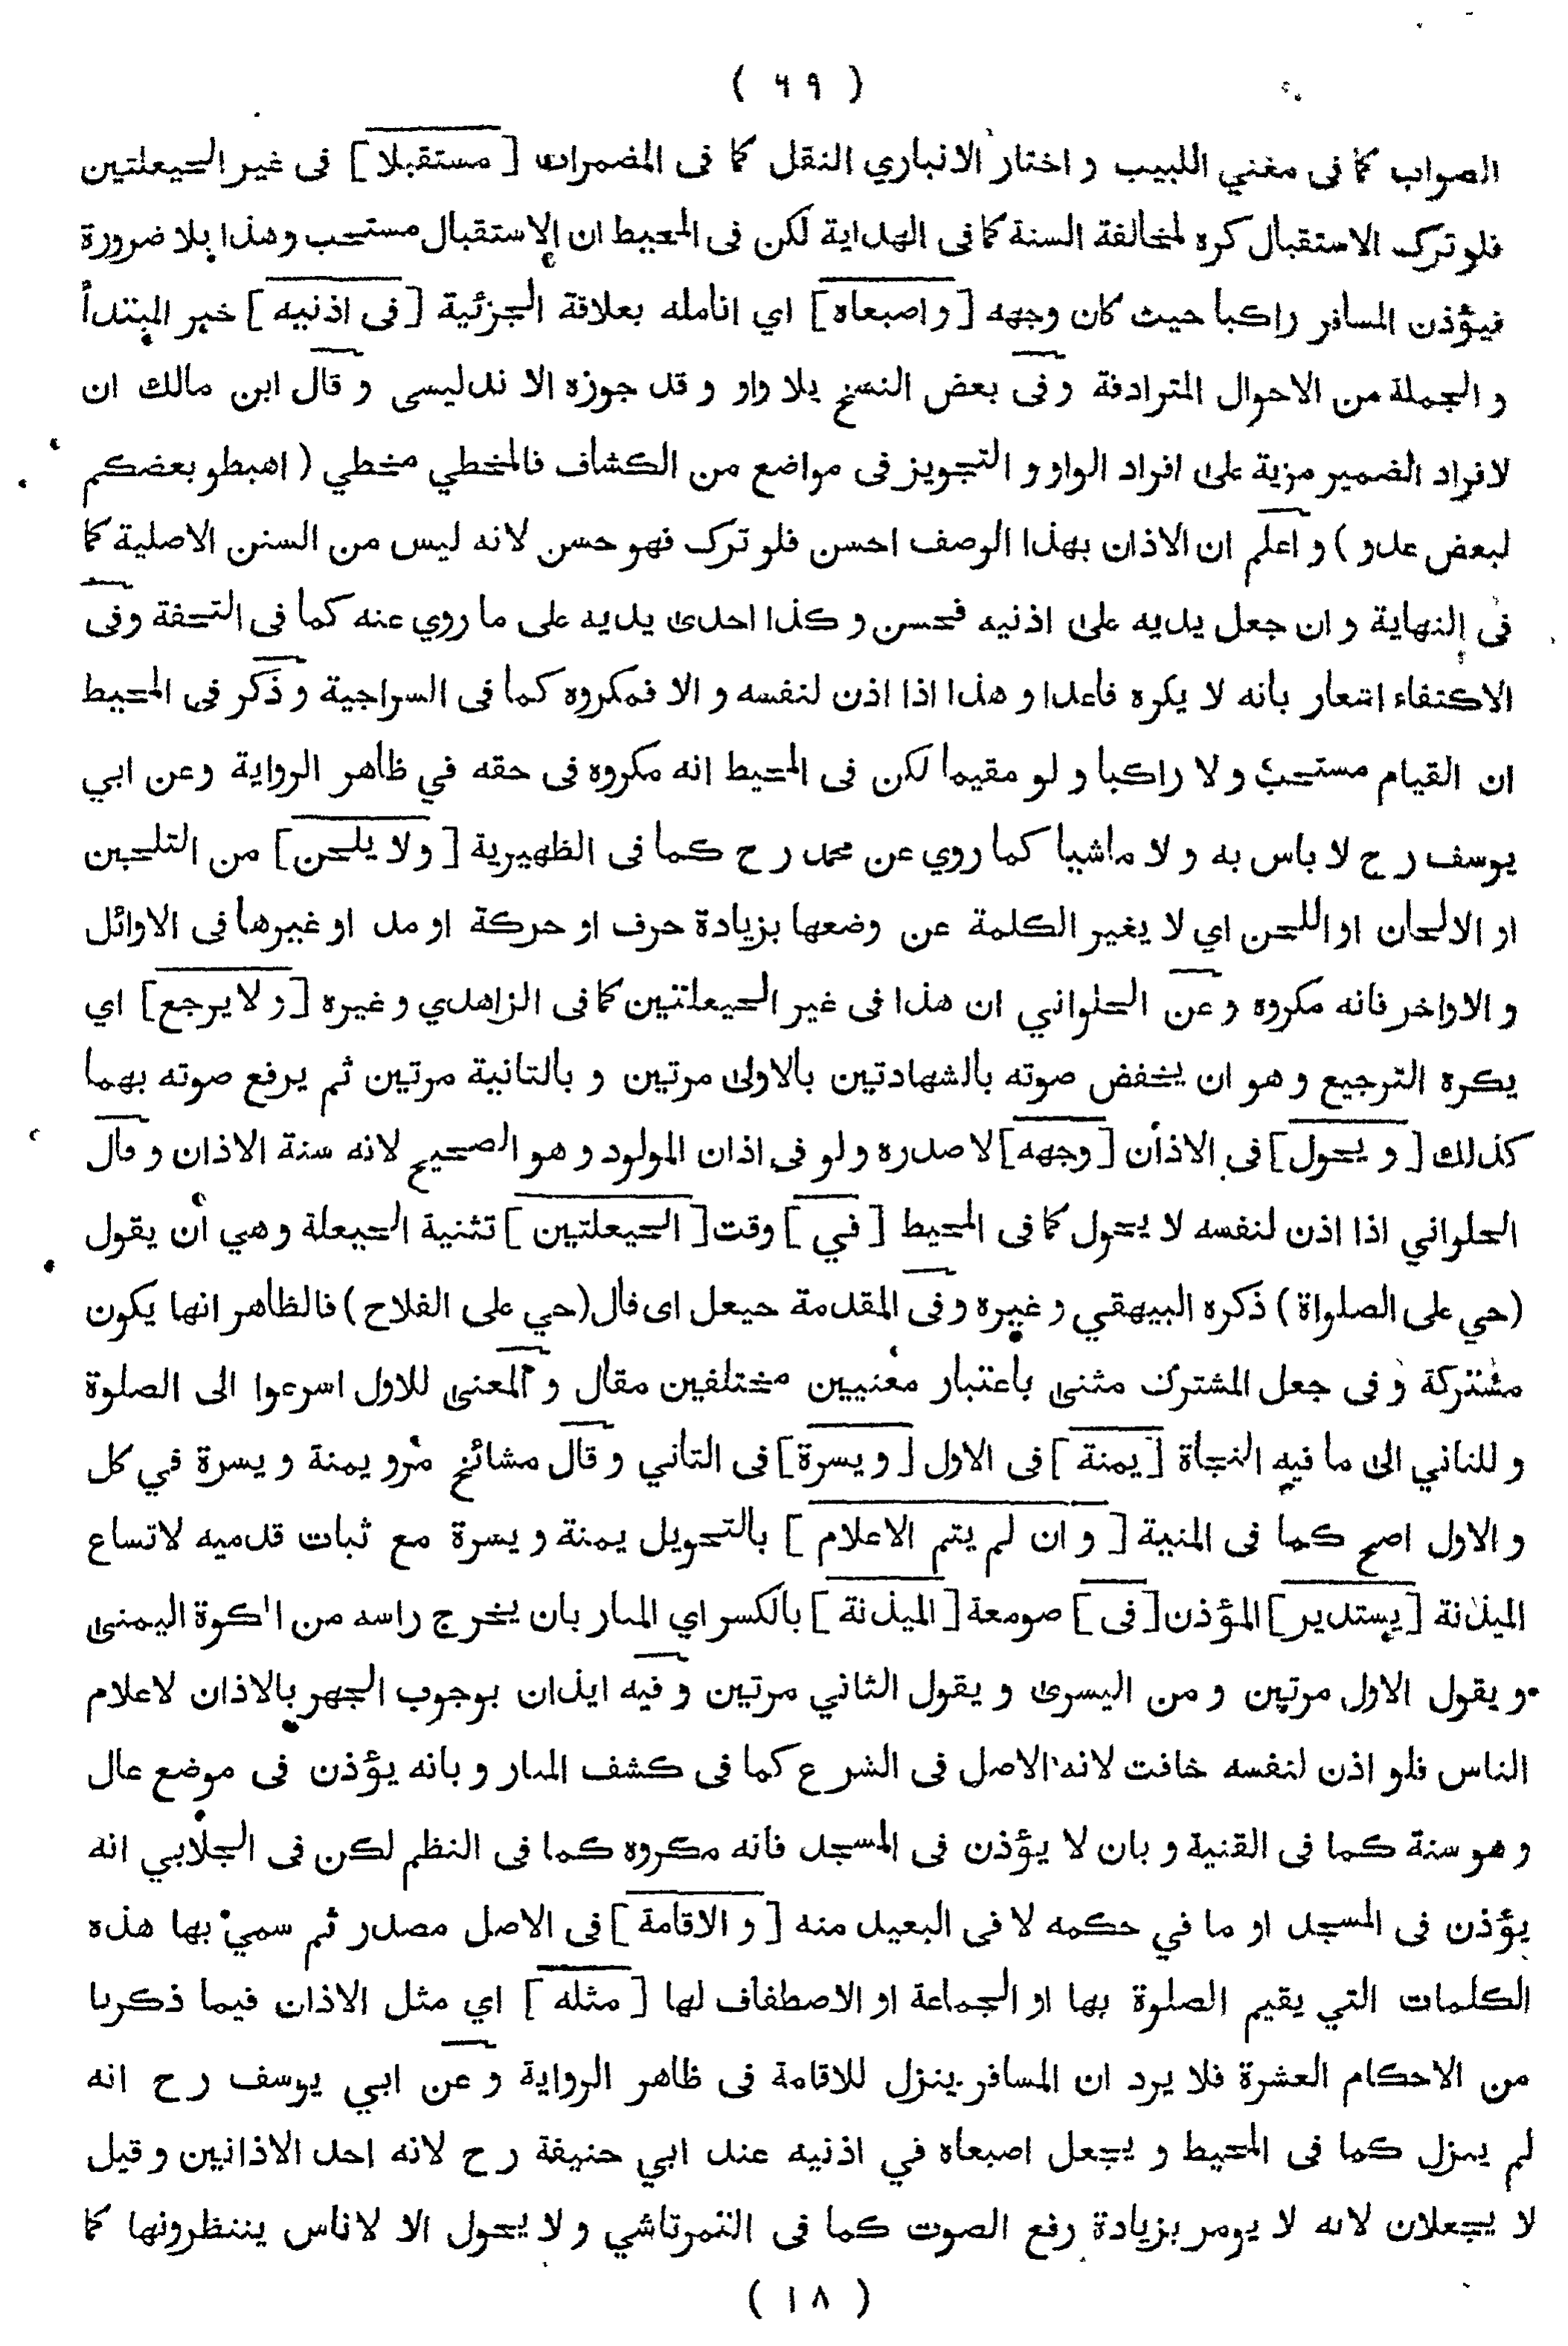 ( ٦٩ )
الصواب كما فى مغني اللبيب و اختار الانباري النقل كما فى المضمرات [ مستقبلا ] فى غير الحيعلتين
فلو ترك الاستقبال كره لمخالفة السنة كما فى الهداية لكن فى المحيط ان الاستقبال مستحب وهذا بلا ضرورة
فيؤذن المسافر راكبا حيث كان وجهه [ و اصبعاه ] اي انامله بعلاقة الجزئية [ فى اذنيه ] خبر المبتدأ
و الجملة من الاحوال المترادفة و فى بعض النسخ بلا واو و قد جوزه الا ندليسى و قال ابن مالك ان
لافراد الضمير مزية على افراد الواو و التجويز فى مواضع من الكشاف فالمخطي مخطي ( اهبطو بعضكم
لبعض عدو ) و اعلم ان الاذان بهذا الوصف احسن فلو ترك فهو حسن لانه ليس من السنن الاصلية كما
فى النهاية و ان جعل يديه على اذنيه فحسن و كذا احدى يديه على ما روي عنه كما فى التحفة وفى
الاكتفاء اشعار بانه لا يكره قاعدا و هذا اذا اذن لنفسه و الا فمكروه كما فى السراجية و ذكر فى المحيط
ان القيام مستحب و لا راكبا و لو مقيما لكن فى المحيط انه مكروه فى حقه في ظاهر الرواية وعن ابي
يوسف ر ح لا باس به و لا ماشيا كما روي عن محمد ر ح كما فى الظهيرية [ ولا يلحن ] من التلحين
او الالحان او اللحن اي لا يغير الكلمة عن وضعها بزيادة حرف او حركة او مد او غيرها فى الاوائل
و الاواخر فانه مكروه و عن الحلواني ان هذا فى غير الحيعلتين كما فى الزاهدي و غيره [ و لا يرجع ] اي
يكره الترجيع و هو ان يخفض صوته بالشهادتين بالاولى مرتين و بالثانية مرتين ثم يرفع صوته بهما
كذلك [ و يحول ] فى الاذان [ وجهه ] لا صدره و لو فى اذان المولود و هو الصحيح لانه سنة الاذان و قال
الحلواني اذا اذن لنفسه لا يحول كما فى المحيط [ في ] وقت [ الحيعلتين ] تثنية الحيعلة و هي أن يقول
(حي على الصلواة ) ذكره البيهقي و غيره و فى المقدمة حيعل اى قال (حي على الفلاح ) فالظاهر انها يكون
مشتركة و فى جعل المشترك مثنى باعتبار معنيين مختلفين مقال و المعنى للاول اسرعوا الى الصلوة
و للثاني الى ما فيه النجاة [ يمنة ] فى الاول [ و يسرة ] فى الثاني و قال مشائخ مرو يمنة و يسرة في كل
و الاول اصح كما فى المنية [ و ان لم يتم الاعلام ] بالتحويل يمنة و يسرة مع ثبات قدميه لاتساع
الميذنة [ يستدير ] المؤذن [ فى ] صومعة [ الميذنة ] بالكسر اي المنار بان يخرج راسه من الكوة اليمنى
و يقول الاول مرتين و من اليسرى و يقول الثاني مرتين و فيه ايذان بوجوب الجهر بالاذان لاعلام
الناس فلو اذن لنفسه خافت لانه الاصل فى الشرع كما فى كشف المنار و بانه يؤذن فى موضع عال
و هو سنة كما فى القنية و بان لا يؤذن فى المسجد فانه مكروه كما فى النظم لكن فى الجلابي انه
يؤذن فى المسجد او ما في حكمه لا فى البعيد منه [ و الاقامة ] فى الاصل مصدر ثم سمي بها هذه
الكلمات التي يقيم الصلوة بها او الجماعة او الاصطفاف لها [ مثله ] اي مثل الاذان فيما ذكرنا
من الاحكام العشرة فلا يرد ان المسافر ينزل للاقامة فى ظاهر الرواية و عن ابي يوسف ر ح انه
لم ينزل كما فى المحيط و يجعل اصبعاه في اذنيه عند ابي حنيفة ر ح لانه احد الاذانين و قيل
لا يجعلان لانه لا يومر بزيادة رفع الصوت كما فى التمرتاشي و لا يحول الا لاناس ينتظرونها كما
( ١٨ )